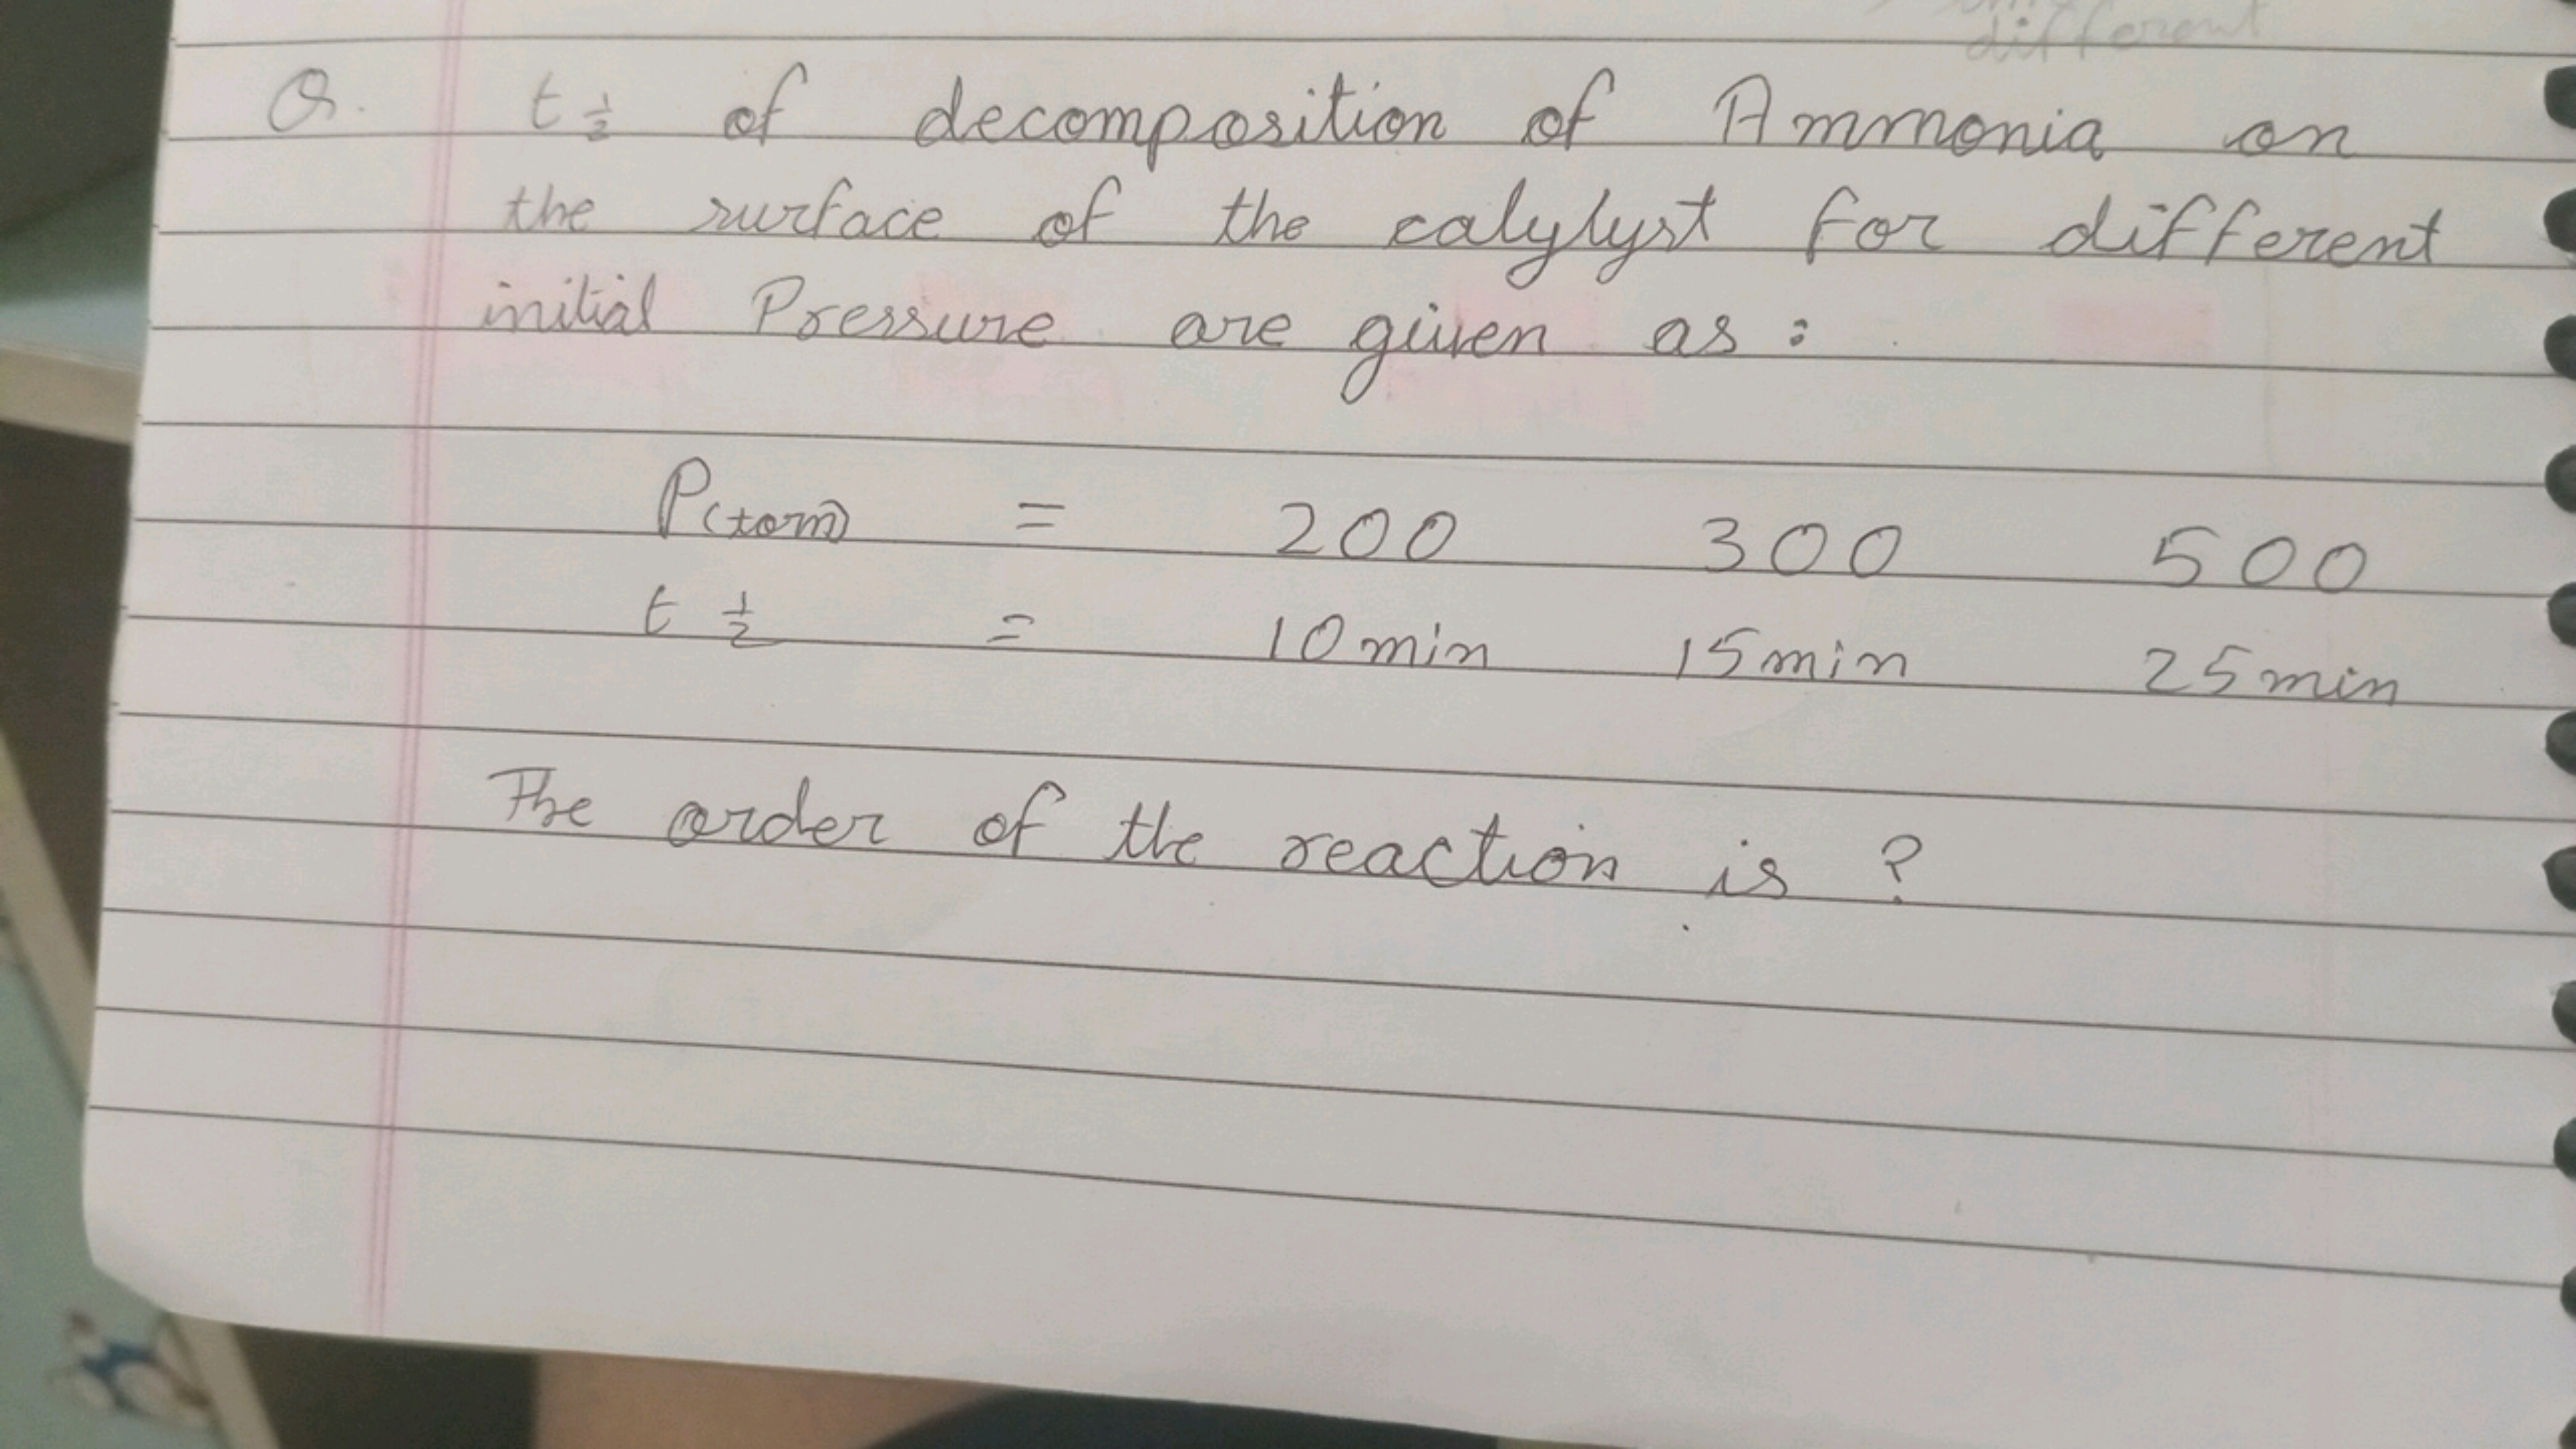 different
Q. t 1/2 of decomposition of Ammonia on
the surface of the calylyst for different
initial Pressure are given as :
P(torr) = 200 300 500
t 1/2 = 10 min 15 min 25 min
The order of the reaction is ?